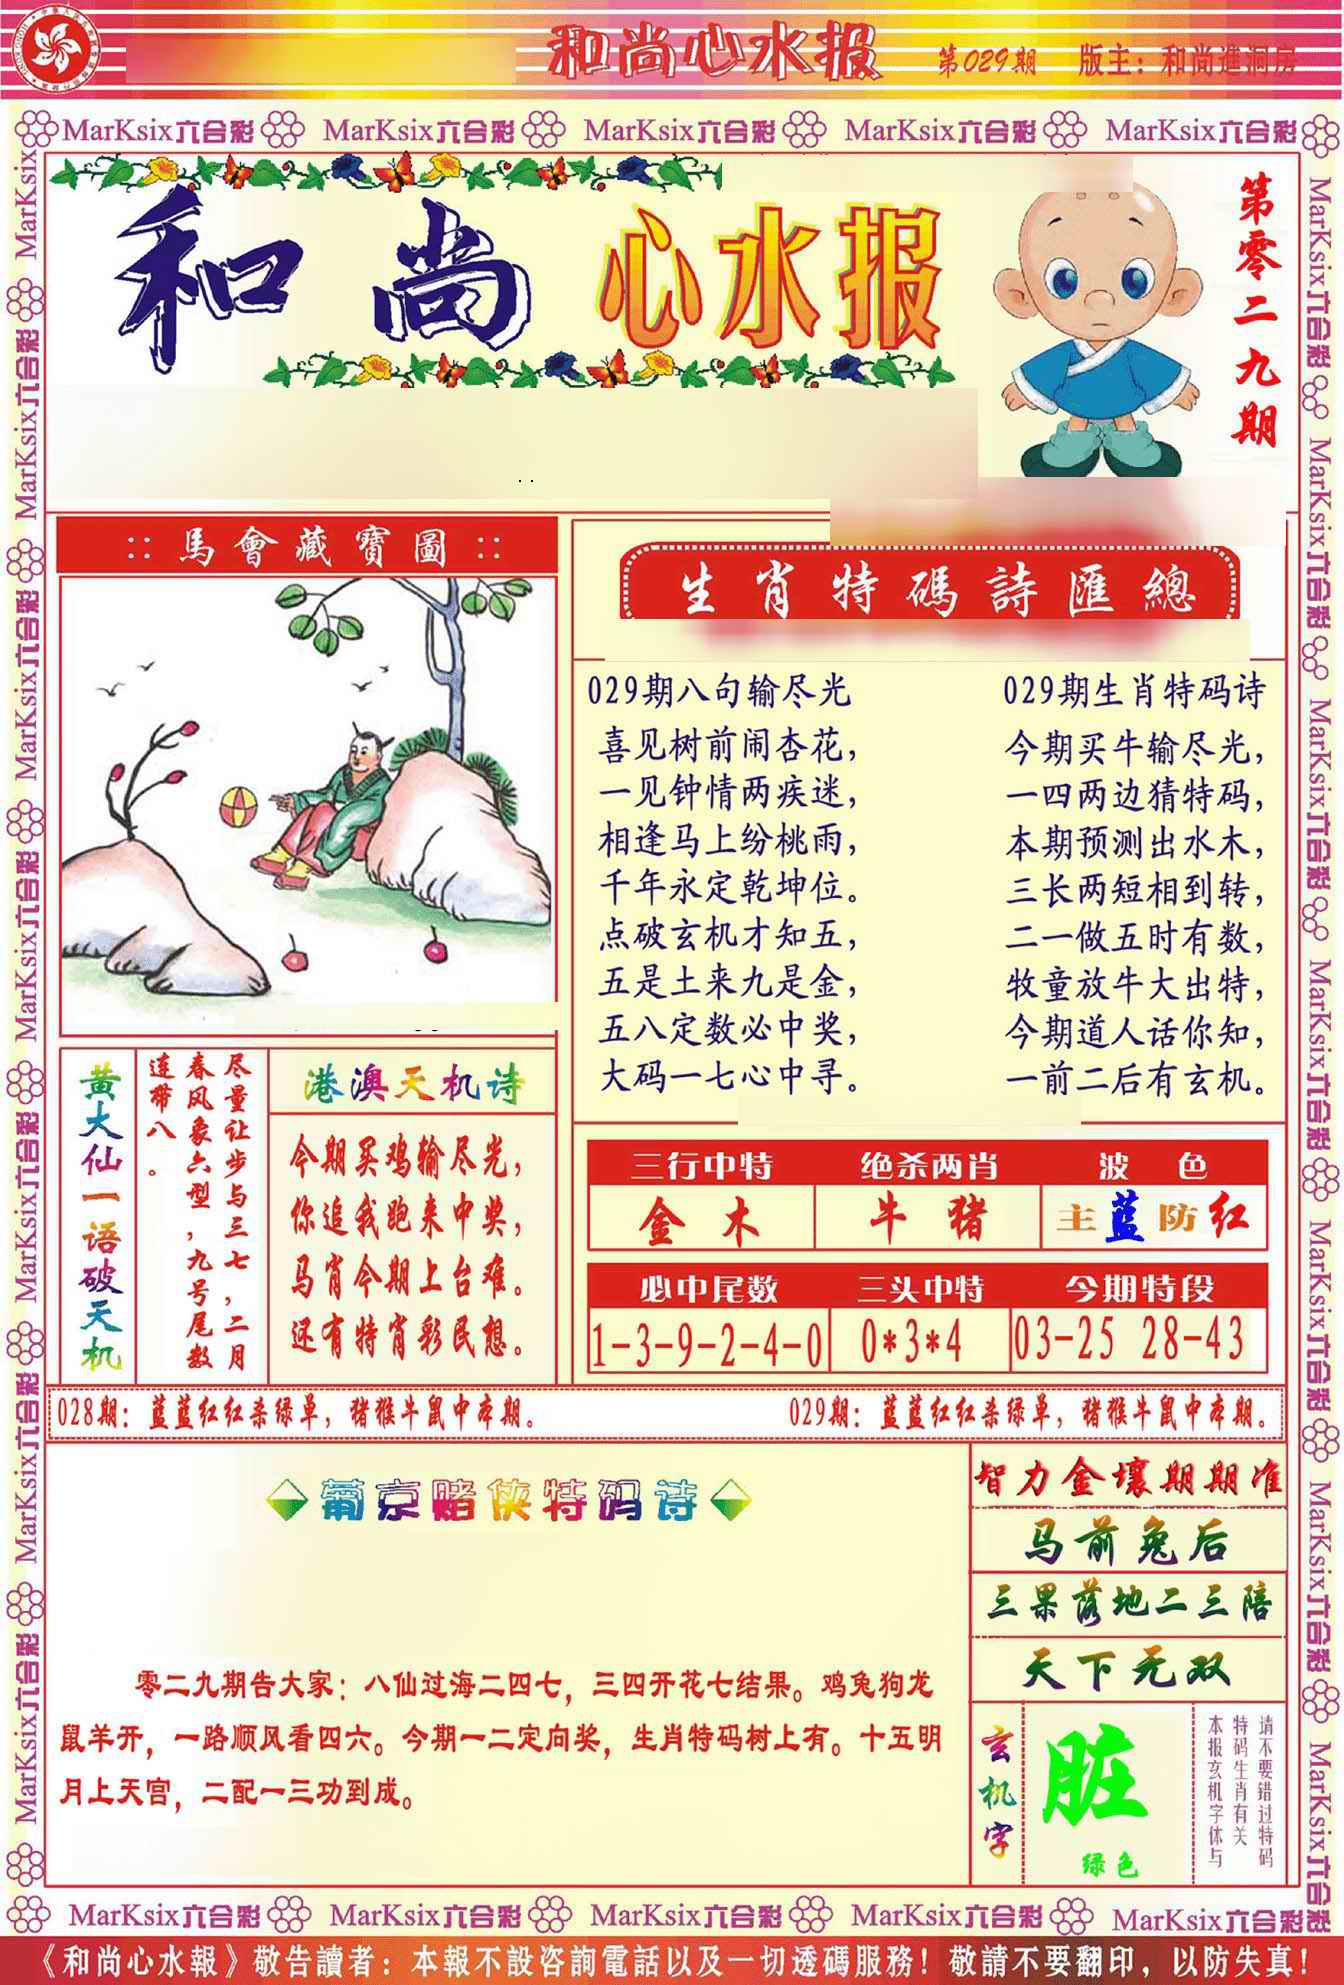 和尚心水报 第029期 版主：和尚進洞房
MarKsix六合彩 MarKsix六合彩 MarKsix六合彩 MarKsix六合彩 MarKsix六合彩
和尚心水报
第零二九期
:: 馬會藏寶圖 ::
生肖特碼詩匯總
029期八句输尽光
喜见树前闹杏花，
一见钟情两疾迷，
相逢马上纷桃雨，
千年永定乾坤位。
点破玄机才知五，
五是土来九是金，
五八定数必中奖，
大码一七心中寻。
029期生肖特码诗
今期买牛输尽光，
一四两边猜特码，
本期预测出水木，
三长两短相到转，
二一做五时有数，
牧童放牛大出特，
今期道人话你知，
一前二后有玄机。
黄大仙一语破天机
尽量让步与三七，二月
春风象六型，九号尾数
连带八。
港澳天机诗
今期买鸡输尽光，
你追我跑来中奖，
马肖今期上台难。
还有特肖彩民想。
三行中特 绝杀两肖 波色
金木 牛猪 主蓝防红
必中尾数 三头中特 今期特段
1-3-9-2-4-0 0*3*4 03-25 28-43
028期：蓝蓝红红杀绿单，猪猴牛鼠中本期。
029期：蓝蓝红红杀绿单，猪猴牛鼠中本期。
葡京赌侠特码诗
零二九期告大家：八仙过海二四七，三四开花七结果。鸡兔狗龙
鼠羊开，一路顺风看四六。今期一二定向奖，生肖特码树上有。十五明
月上天宫，二配一三功到成。
智力金壤期期准
马前兔后
三果落地二三陪
天下无双
玄机字
脏
绿色
请不要错过特码
特码生肖有关
本报玄机字体与
MarKsix六合彩 MarKsix六合彩 MarKsix六合彩 MarKsix六合彩 MarKsix六合彩
《和尚心水報》敬告讀者：本報不設咨詢電話以及一切透碼服務！敬請不要翻印，以防失真！